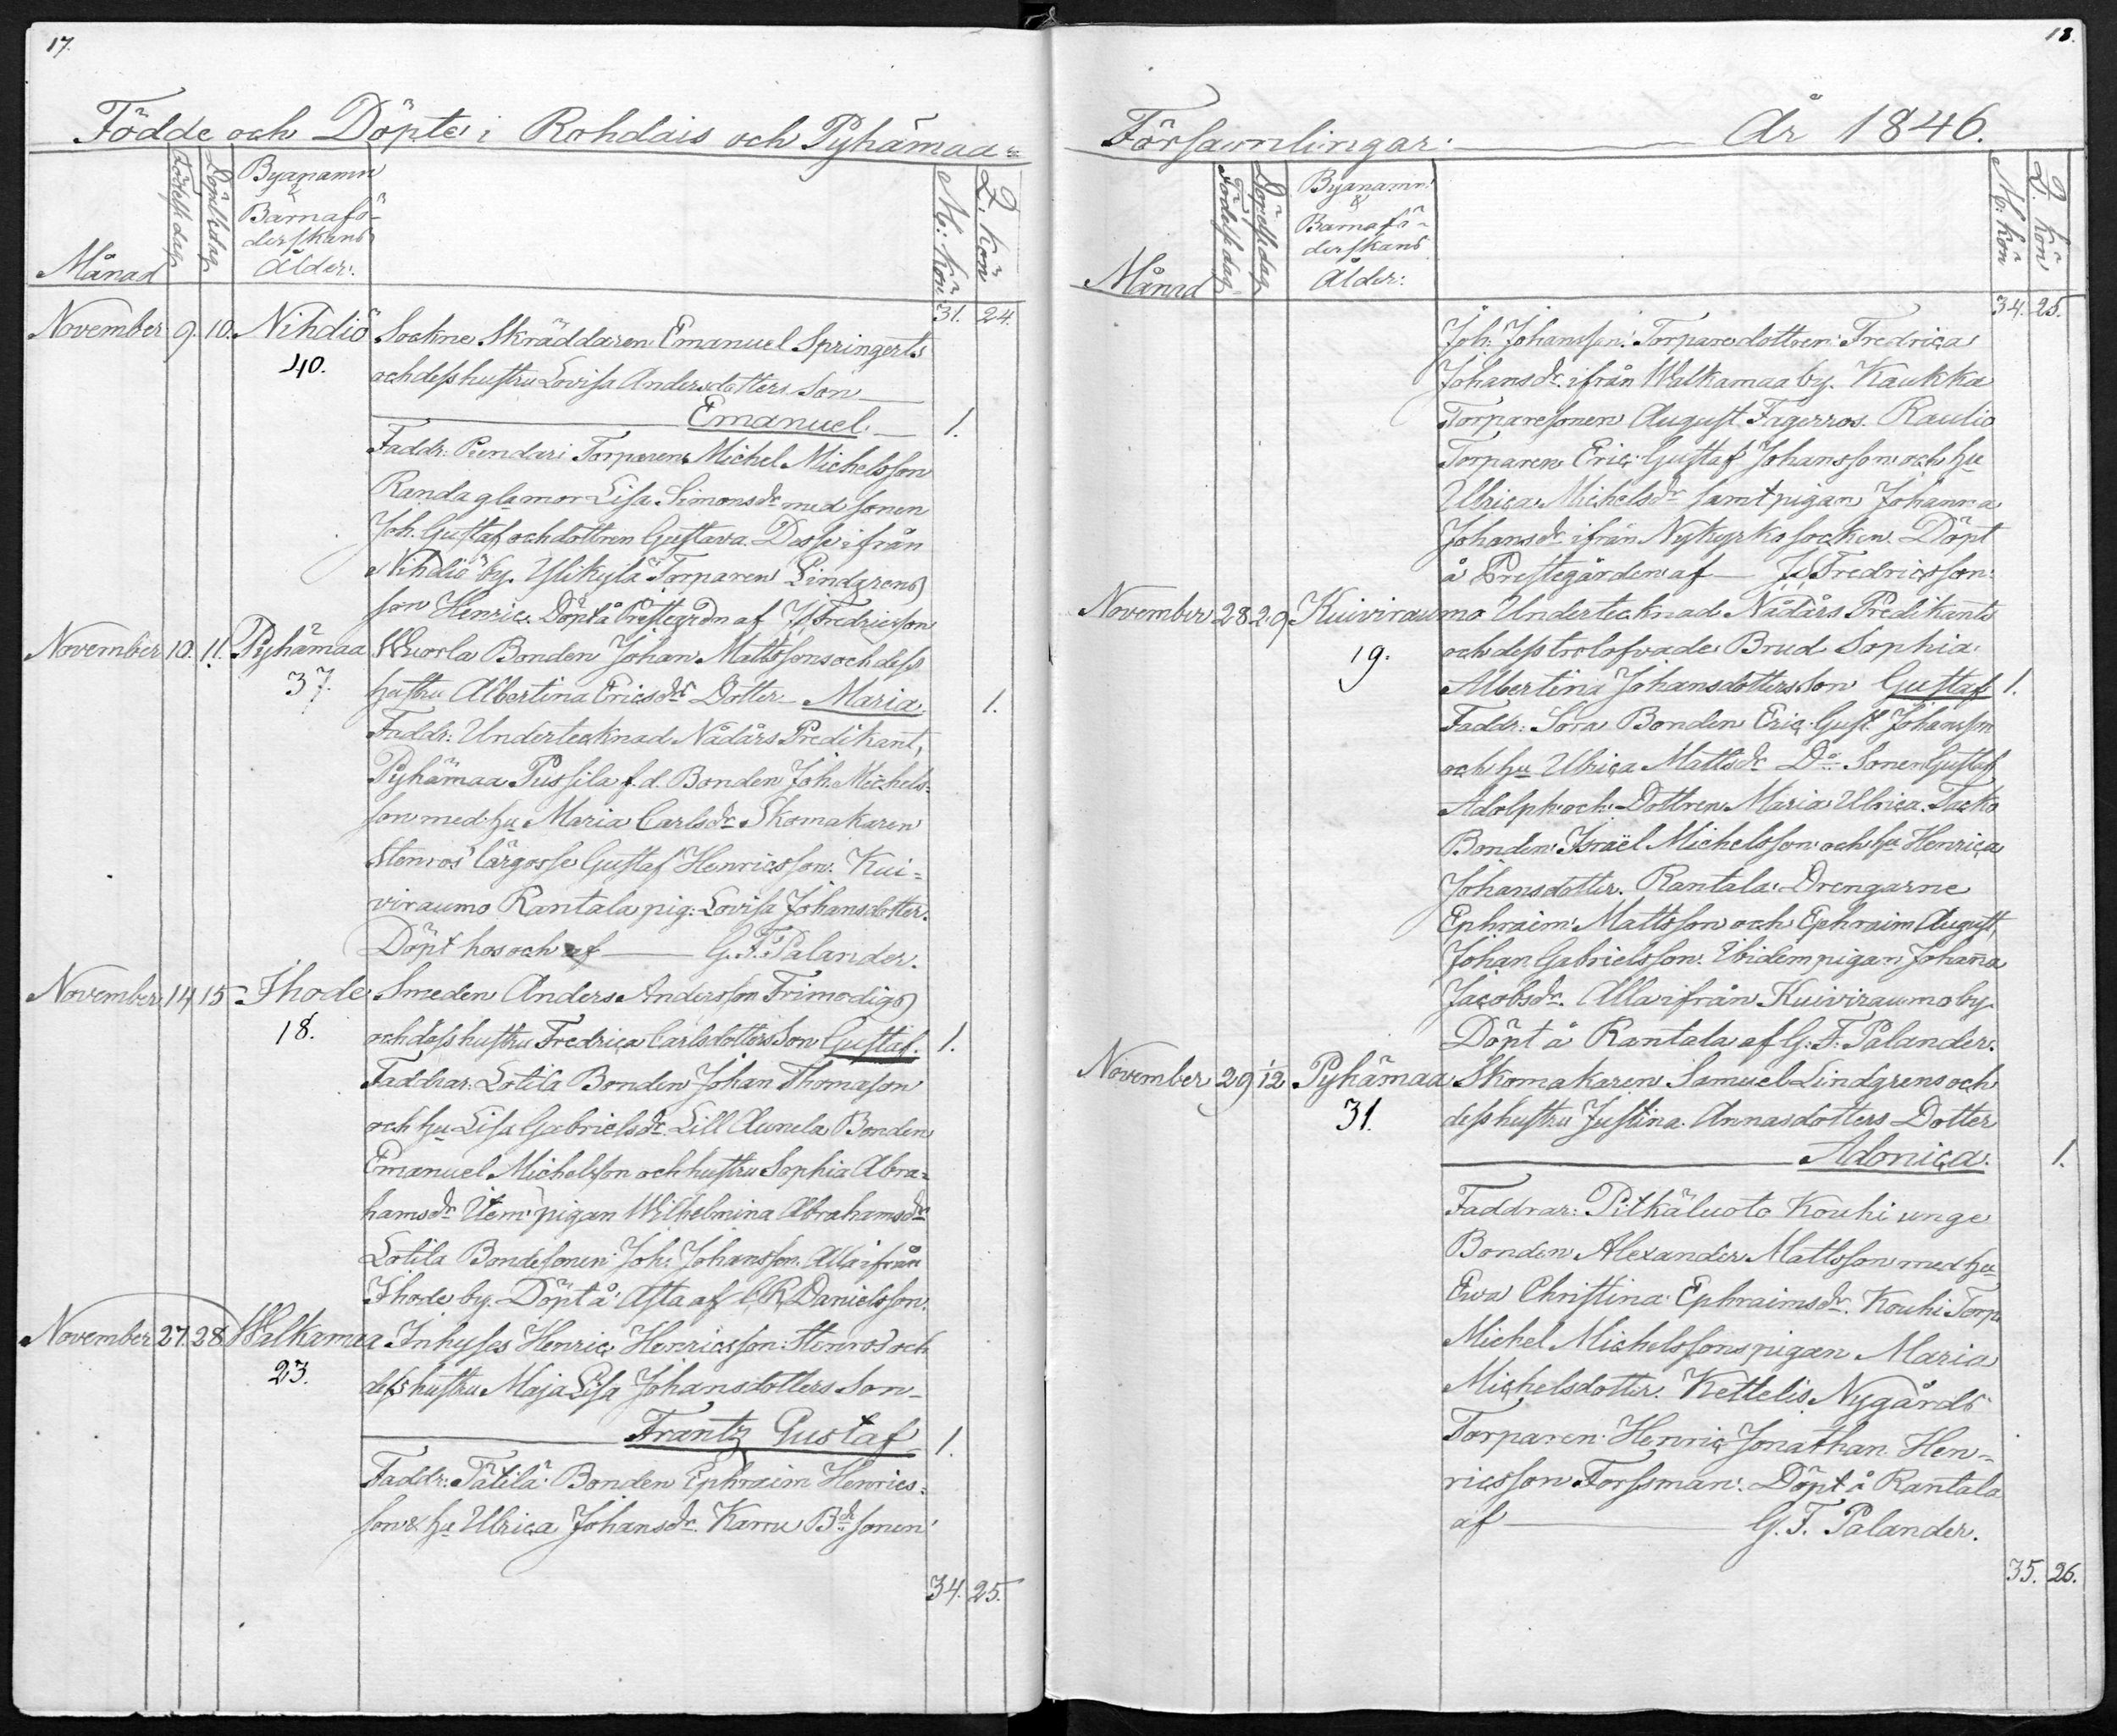 17.
Födde och Döpte i Rohdais och Pyhämaa=
Månad
Födelsedag
Döpelsedag
Byanamn
&
Barnafö-
derskans
Ålder:
M: kön
Q. kön
31. 24.
November 9. 10. Nihdiö Sockne Skräddaren Emanuel Springerts
40. och dess hustru Lovisa Andersdotters Son
Emanuel 1.
Faddr: Pendari Torparen Michel Michelsson
Randa gla mor Lisa Simonsdr med sonen
Joh. Gustaf och dottren Gustava. Desse ifrån
Nihdiö by. Ylikylä Torparen Lindgrens
son Henric. Döpt å Prestegårdn af Js Fredricsson
November 10. 11. Pyhämaa Wuorla Bonden Johan Mattssons och dess
37. hustru Albertina Ericsdrs Dotter Maria. 1.
Faddr: Undertecknad Nådårs Predikant,
Pyhämaa Pussila f.d. Bonden Joh. Michels-
son med hu Maria Carlsdr Skomakaren
Stenros' lärgosse Gustaf Henricsson. Kui=
viraumo Rantala pig: Lovisa Johansdotter.
Döpt hos och af G. F. Palander.
November 14 15 Ihode Smeden Anders Andersson Frimodigs
18. och dess hustru Fredrica Carlsdotters Son Gustaf. 1.
Faddrar: Lotila Bonden Johan Thomasson
och hu Lisa Gabrielsdr. Lill Aunela Bonden
Emanuel Michelsson och hustru Sophia Abra=
hamsdr Item pigan Wilhelmina Abrahamsdr
Lotila Bondesonen Joh: Johansson. Alla ifrån
Ihode by. Döpt å Asta af C. R. Danielsson.
November 27. 28 Walkamaa Inhyses Henric Henricsson Stenros och
23. dess hustru Maja Lisa Johansdotters Son
Frantz Gustaf 1.
Faddr: Tätilä Bonden Ephraim Henrics=
son & hu Ulrica Johansdr. Karru Bdesonen
34. 25.
18.
Församlingar: År 1846.
Månad
Födelsedag
Döpelsedag
Byanamn
&
Barnafö-
derskans
Ålder:
M: kön
Q. kön
34. 25.
Joh: Johansson. Torparedottren Fredrica
Johansdr. ifrån Walkamaa by. Kaukka
Torparesonen August Fagerros. Raulio
Torparen Eric Gustaf Johansson och hu
Ulrica Michelsdr samt pigan Johanna
Johansdr ifrån Nykyrko socken. Döpt
å Prestegården af Js Fredricsson.
November 28 29 Kuiviraumo Undertecknad Nådårs Predikants
19. och dess trolofvade Brud Sophia
Albertina Johansdotters Son Gustaf 1.
Faddr: Sora Bonden Eric Gust. Johansson
och hu Ulrica Mattsdr Do Sonen Gustaf
Adolph och Dottren Maria Ulrica. Tacko
Bonden Israël Michelsson och hu Henrica
Johansdotter. Rantala Drengarne
Ephraim Mattsson och Ephraim August,
Johan Gabrielsson. Ibidem pigan Johanna
Jacobsdr. Alla ifrån Kuiviraumo by.
Döpt å Rantala af G. F. Palander.
November 29 1/12 Pyhämaa Skomakaren Samuel Lindgrens och
31. dess hustru Justina Annasdotters Dotter
Adonica. 1.
Faddrar: Pitkäluoto Kouhi unge
Bonden Alexander Mattsson med hu
Ewa Christina Ephraimsdr. Kouhi Torp.
Michel Michelssons pigan Maria
Michelsdotter. Kettelis Nygårds
Torparen Henric Jonathan Hen=
ricsson Forssman. Döpt å Rantala
af G. F. Palander.
35. 26.